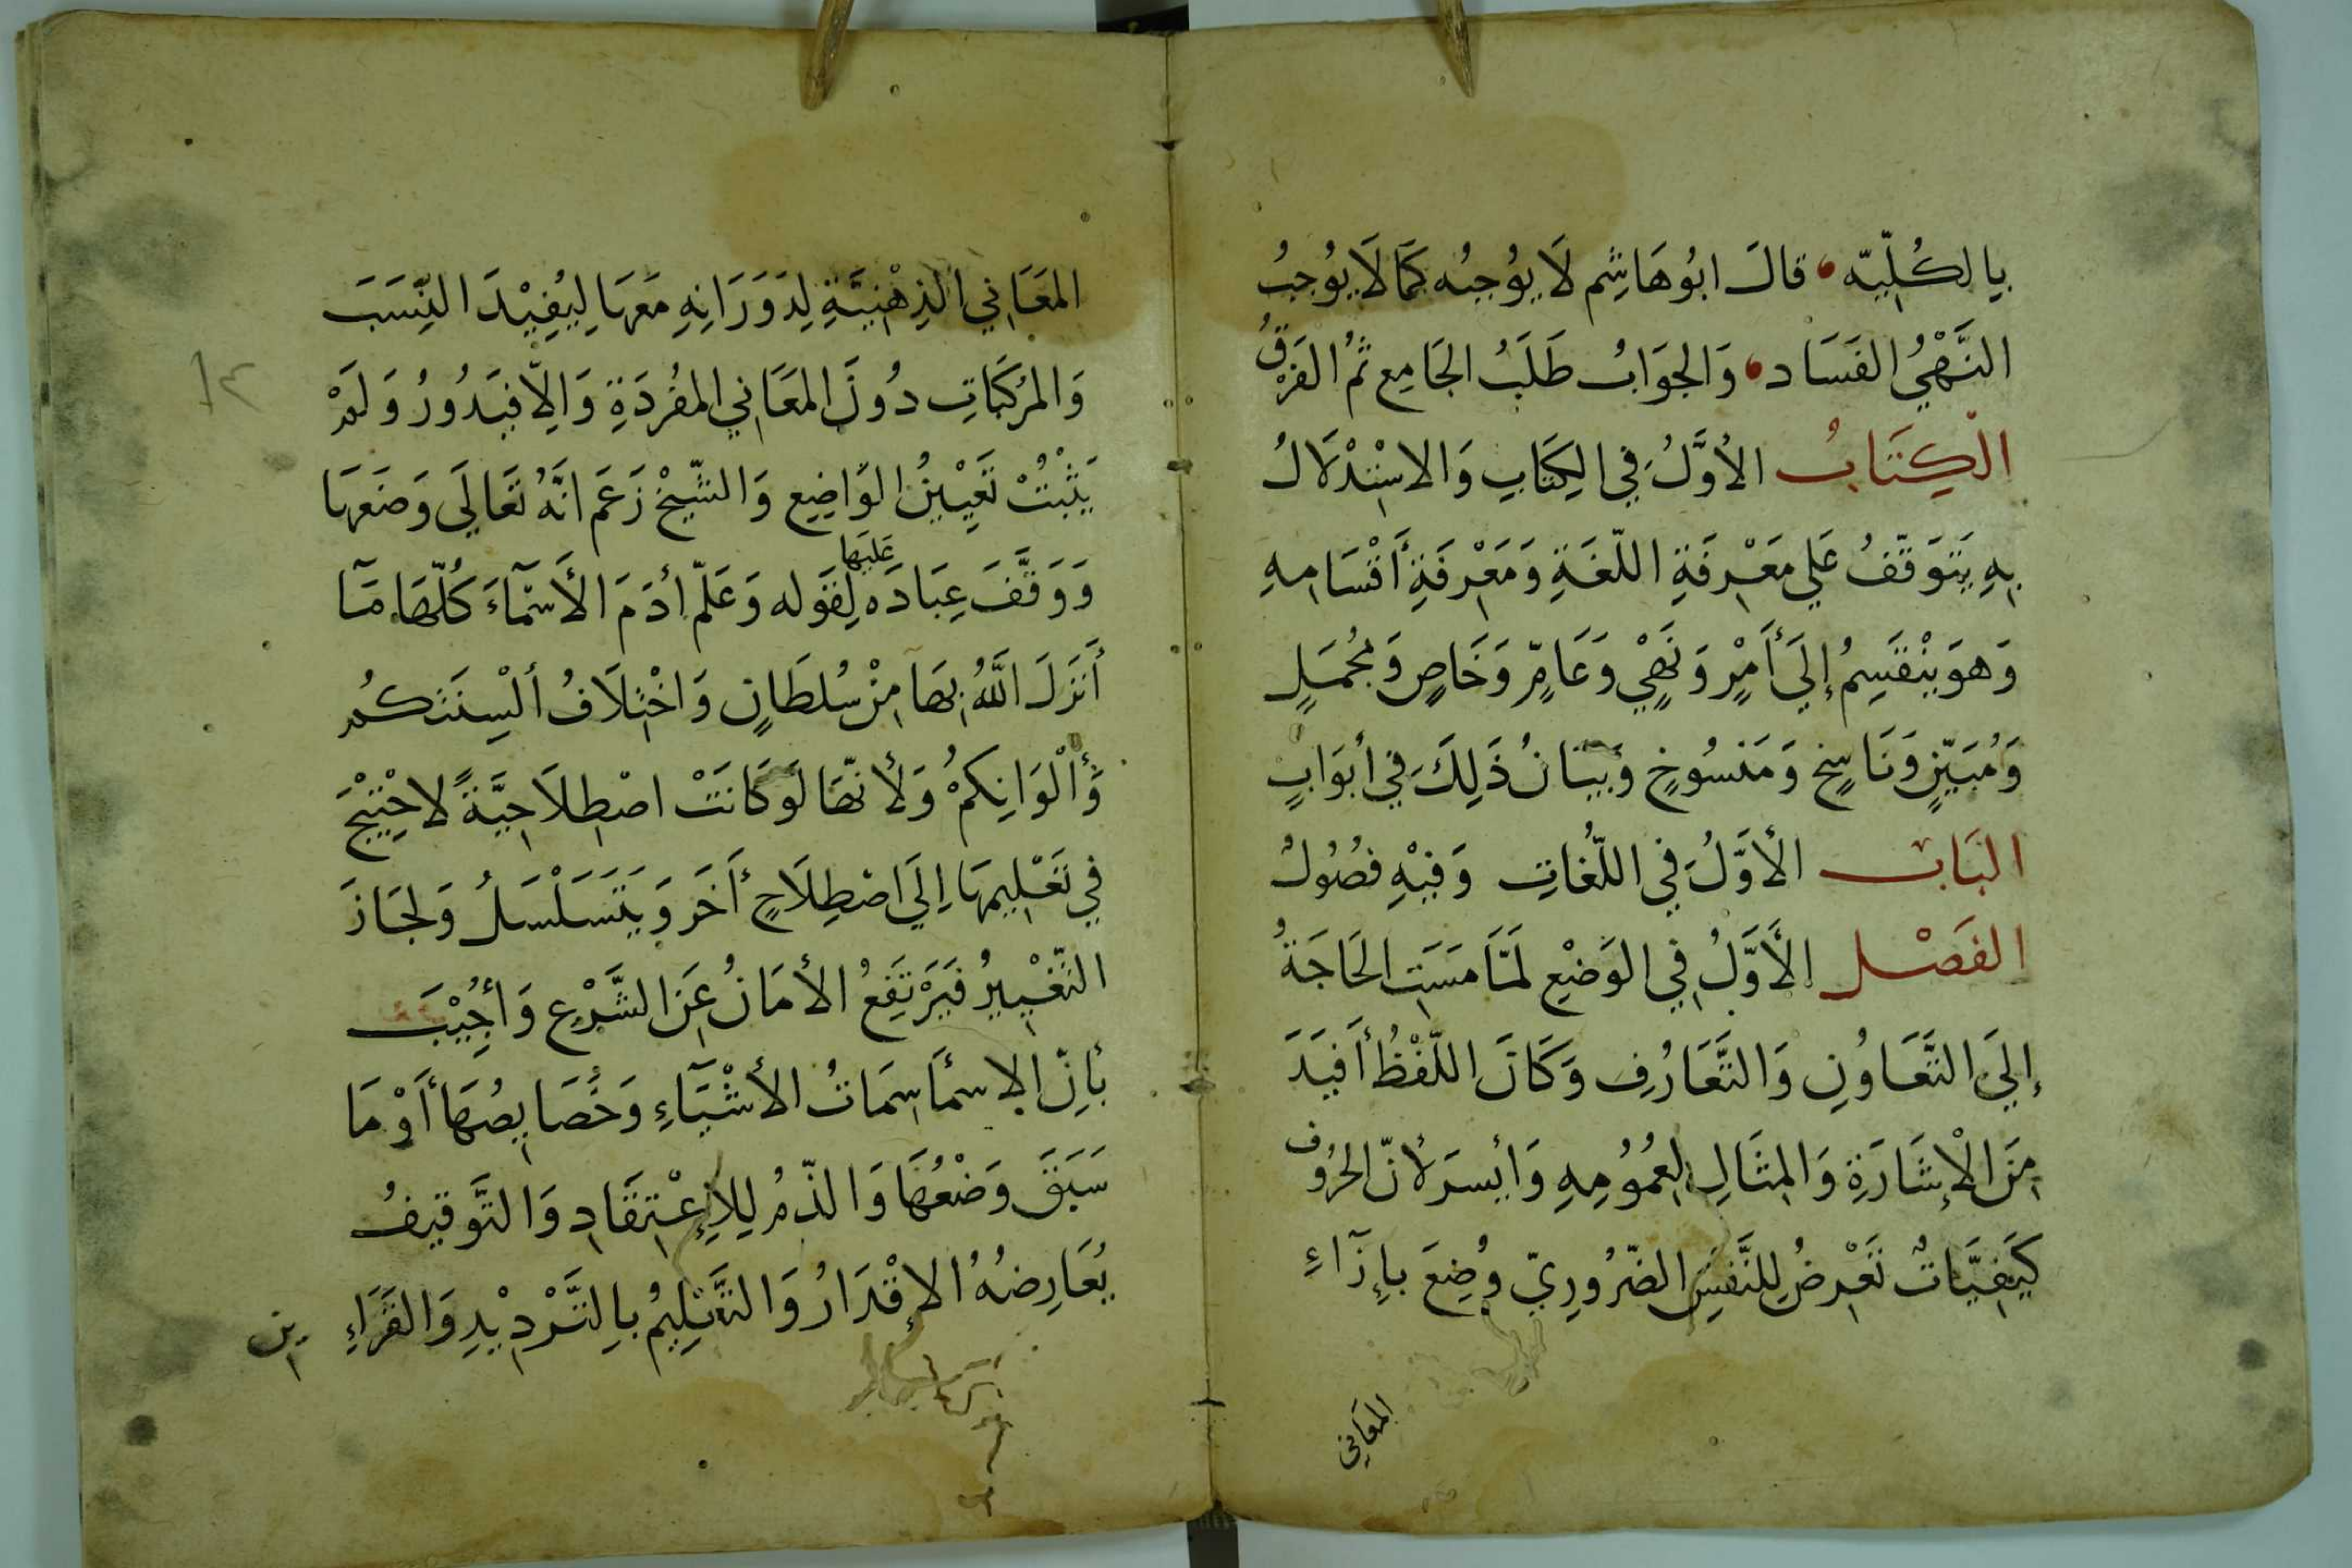 بِالكُلّيّه، قالَ ابُوهَاشِم لَا يوُجبُه كَمَا لَا يوُجِبُ
النَّهْيُ الفَسَاد، وَالجوَابُ طَلَبُ الجَامِع ثمُ الفَرْقُ
الْكِتَابُ الأوَّلُ فِي الكِتَابِ وَالاسْتِدْلَالُ
بِهِ يَتَوَقّفُ عَلي مَعْرِفَةِ اللّغَةِ وَمَعْرِفَةِ أَقْسَامِهِ
وَهوَ يَنْقَسِمُ إلَي أَمْرٍ وَنَهْيٍ وَعَامٍّ وَخَاصٍ وَمُجْمَلٍ
وَمُبَيّنٍ وَنَاسِخٍ وَمَنسُوخٍ وَبَيَانُ ذَلِكَ فِي أبوَابٍ
البَابُ الأوَّلُ فِي اللّغُاتِ وَفيْهِ فصُوُلٌ
الفَصْل الأَوَّلُ فِي الوَضْعِ لَمّا مَسَتِ الحَاجَةُ
إلَيَ التَّعَاوُنِ وَالتَّعَارُفِ وَكَانَ اللّفْظُ أَفيَدَ
مِنَ الْإشَارَةِ وَالمِثَالِ لعُمُوُمِهِ وَأيْسرَ لأنّ الحرُوُف
كَيَفِيَّاتٌ تَعْرِضُ لِلنَّفَسِ الضّرُورِيّ وُضِعَ بِإِزَآءِ
المعَاني
المعَاني الذِهْنيَّةِ لِدَوَرَانِهِ مَعَهَا لِيُفِيْدَ النِّسَبَ
وَالمُركَبَاتِ دُونَ المعَاني المفُردَةِ وَالاّ فيَدُورُ وَلَمْ
يَثْبُتْ تَعْيِيْنُ الوَاضِعِ وَالشّيخْ زَعَمَ انَّهُ تَعَالَي وَضَعَهَا
وَوَقَّفَ عِبَادَه عَلَيهَا لِقَوله وَعَلّمَ أدَمَ الأَسْمَآءَ كُلّهَا مَآ
أَنزَلَ اللّهُ بِهَا مِنْ سُلطَانٍ وَاخْتِلَافُ ألْسِنَتكُم
وَأَلْوَانِكمُْ وَلأنّهَا لَو كَانَتْ اصْطِلَاحِيَّةً لاحْتِيْجَ
في تَعْلِيمِهَا إِلَي اصْطِلَاحٍ أخَر وَيَتَسَلْسَلُ وَلجَازَ
التّغْيِيرُ فيَرْتَفِعُ الأمَانُ عَنِ الشَّرْعِ وَأجِيْبَ
بأِنّ الاسمأ سِمَاتُ الأشْيَآءِ وَخَصَايِصُهَا أَوْ مَا
سَبَقَ وَضْعُهَا وَالذّمُ لِلإِعْتِقَادِ وَالتَّوقيفُ
يُعَارِضُهُ الإقْدَارُ وَالتَّعْلِيمُ بِالتَّرْدِيْدِ وَالقَرَاءِ
ين